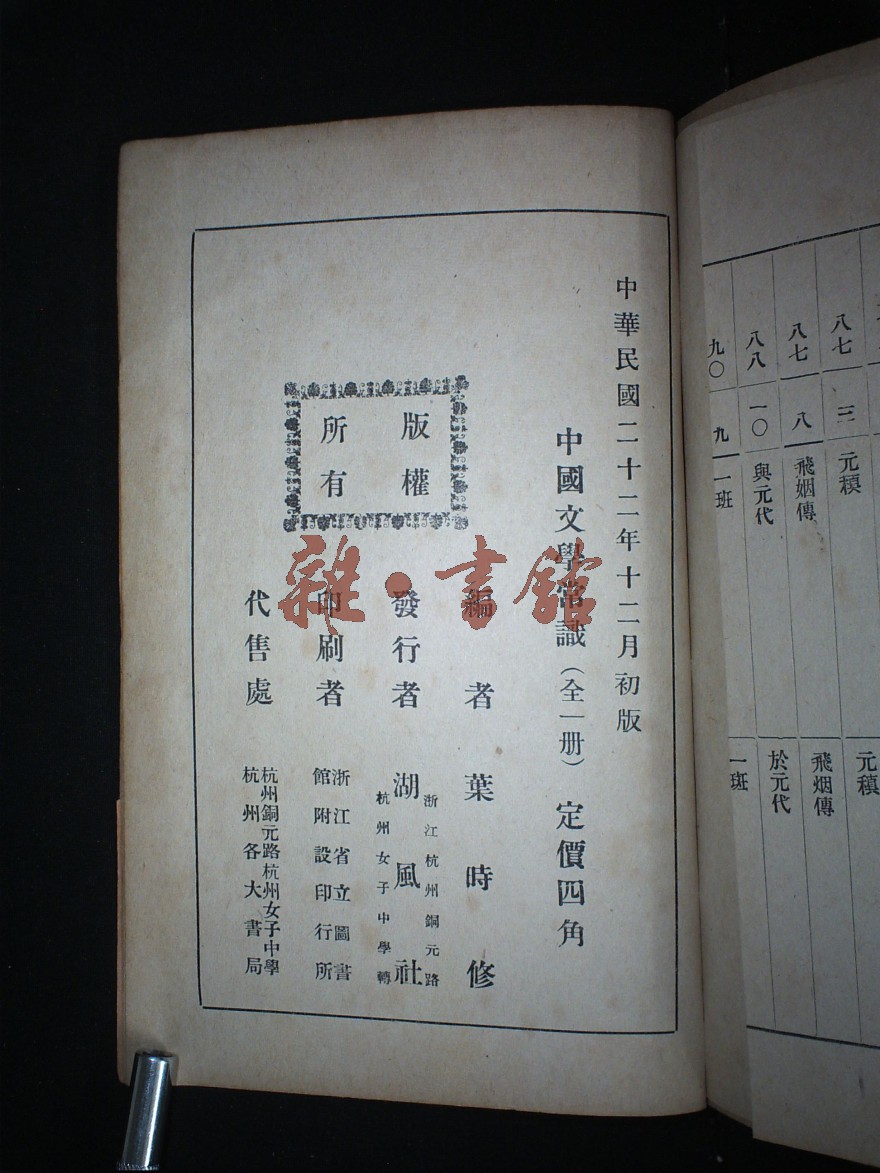 中華民國二十二年十二月初版
中國文學常識（全一册）定價四角
版權
所有
編者 葉時修
發行者 湖風社
浙江杭州銅元路
杭州女子中學轉
印刷者 浙江省立圖書
館附設印行所
代售處 杭州銅元路杭州女子中學
杭州各大書局
雜·書館
八七 三 元稹 元稹
八七 八 飛姻傳 飛烟傳
八八 一〇 與元代 於元代
九〇 九 一班 一斑